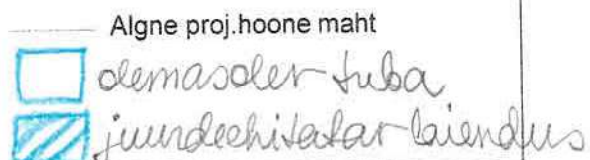 Algne proj.hoone maht
olemasolev tuba
juurdeehitatav laiendus